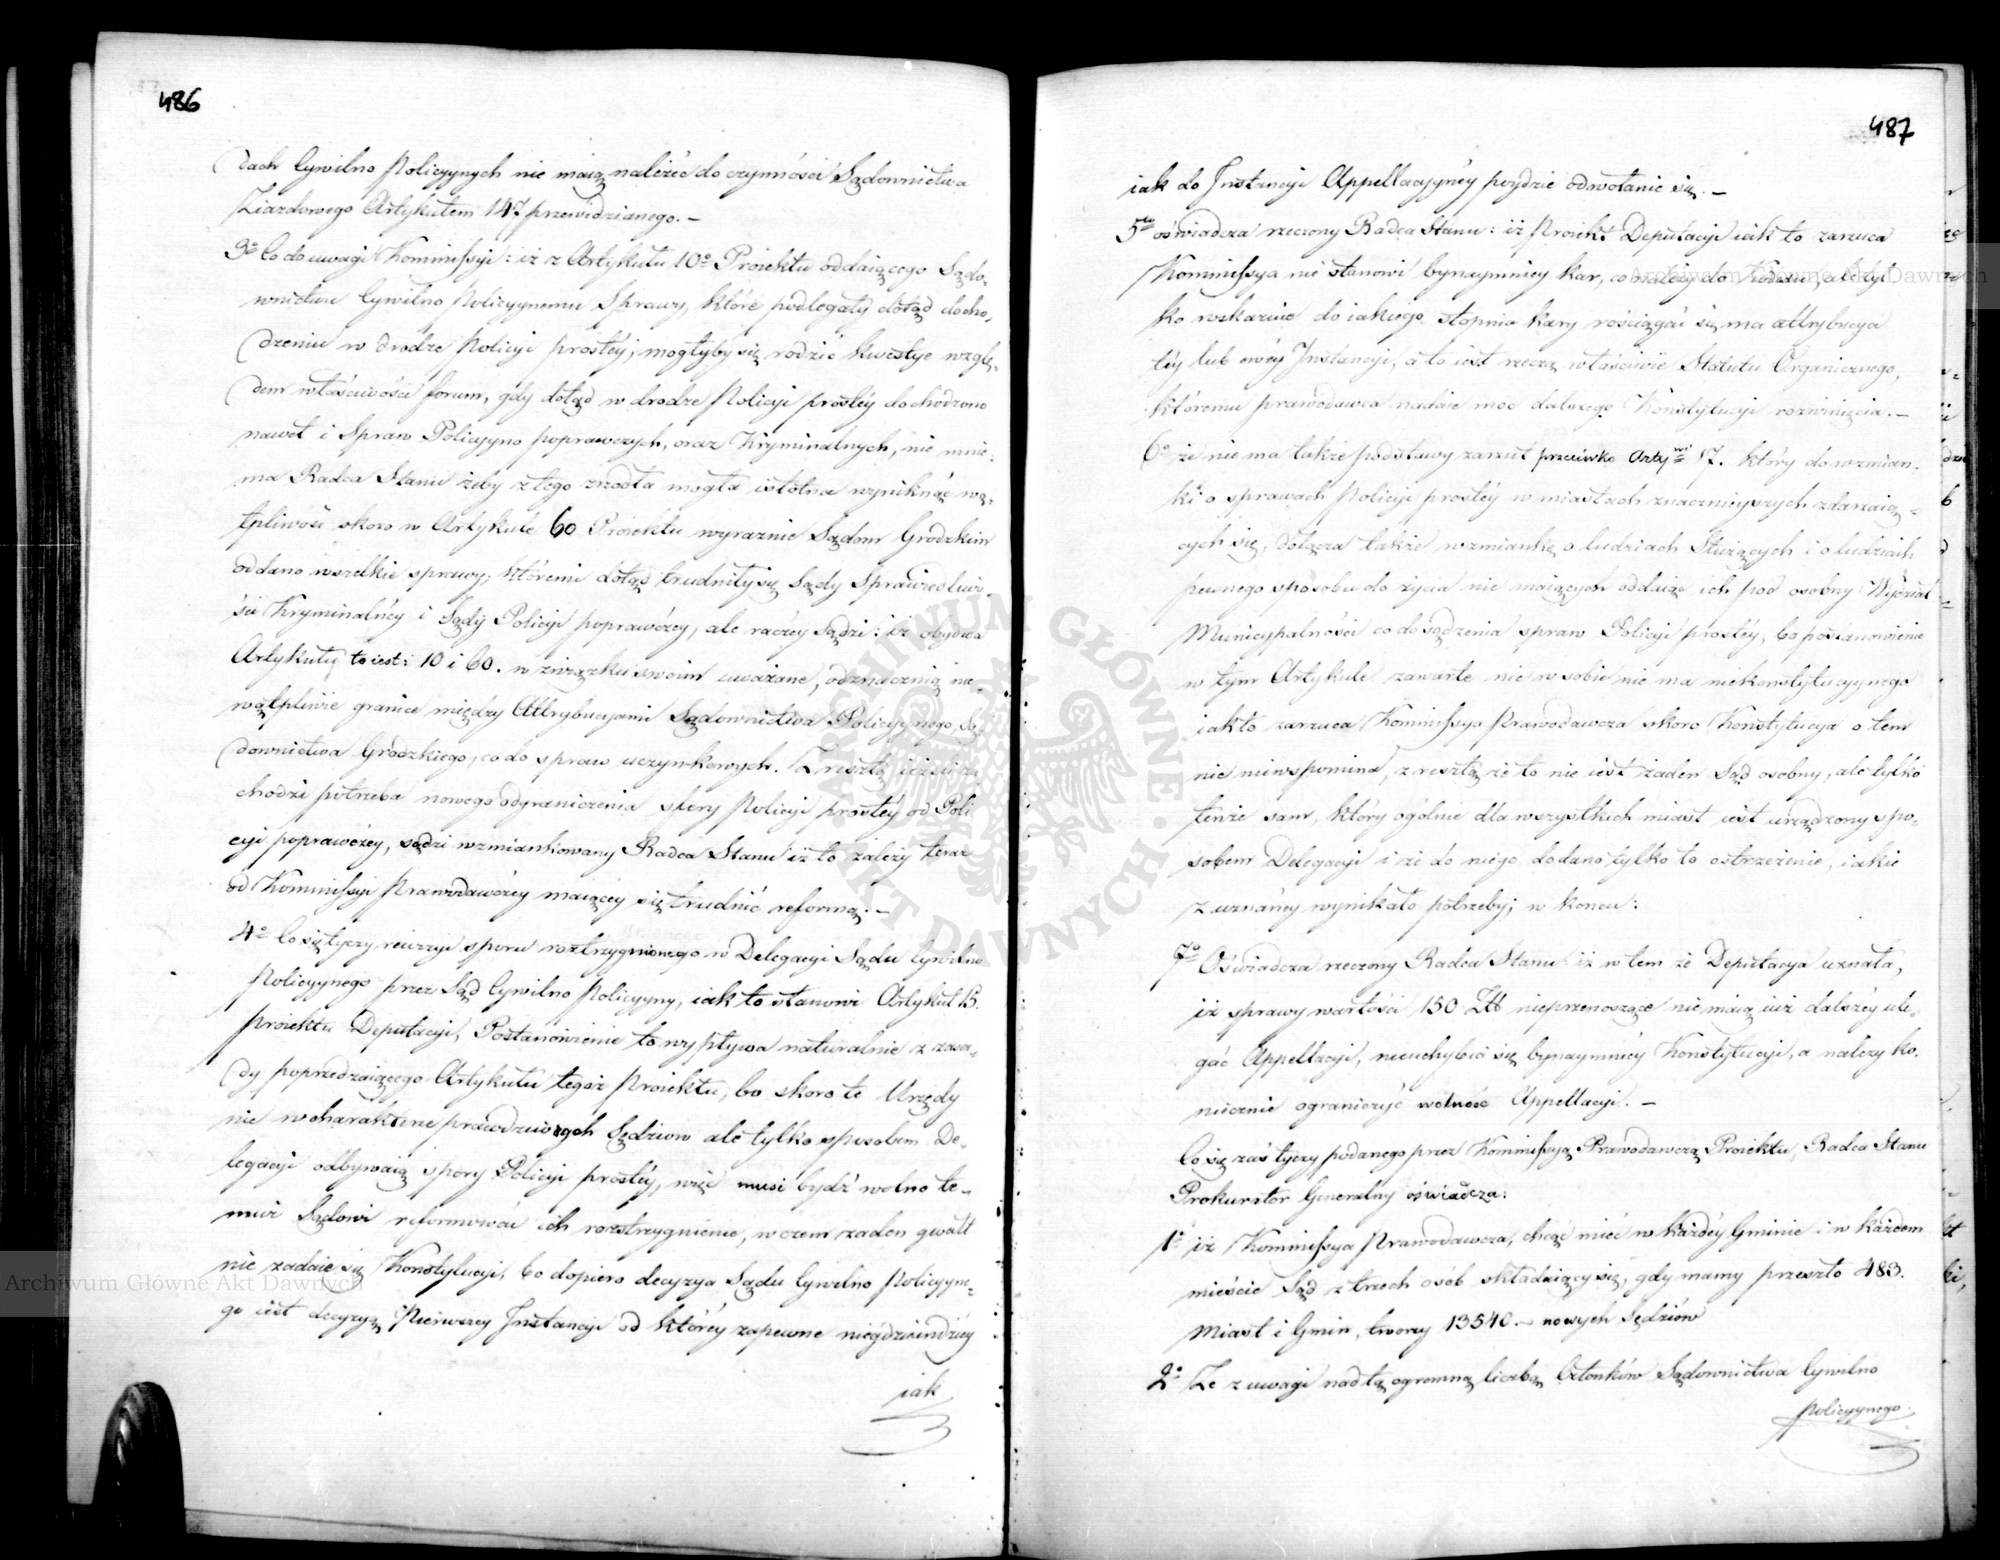 486
dach Cywilno Policyynych nie maią należéć do czynności Sądownictwa
Ziazdowego Artykułem 147 przewidzianego. –
3º Co do uwagi Kommissyi: iż z Artykułu 10º Proiektu oddaiącego Sądo-
wnictwu Cywilno Policyynemu Sprawy, które podlegały dotąd docho-
dzeniu w drodze Policyi prostéy, mogłyby się rodzić kwestye wzglę-
dem właściwości forum, gdy dotąd w drodze Policyi prostéy dochodzono
nawet i Spraw Policyyno poprawczych, oraz Kryminalnych, nie mnie-
ma Radca Stanu żeby z tego źrzodła mogła istotna wyniknąć wą-
tpliwość skoro w Artykule 60 Proiektu wyraznie Sądom Grodzkim
oddano wszelkie sprawy, któremi dotąd trudniły się Sądy Sprawiedliwo-
ści Kryminalnéy i Sądy Policyi poprawczéy, ale raczéy sądzi: iż obydwa
Artykuły to iest: 10 i 60. w związku swoim uważane, odznaczaią nie-
wątpliwie granice między Attrybucyami Sądownictwa Policyynego, Są-
downictwa Grodzkiego, co do spraw uczynkowych. Zresztą ieżeli za-
chodzi potrzeba nowego odgraniczenia sfery Policyi prostéy od Poli
cyi poprawczéy, sądzi wzmiankowany Radca Stanu iż to zależy teraz
od Kommissyi Prawodawczéy maiącéy się trudnić reformą. –
4º Co się tyczy rewizyi sporu roztrzygnionego w Delegacyi Sądu Cywilno
Policyynego przez Sąd Cywilno Policyyny, iak to stanowi Artykuł 13.
Proiektu Deputacyi, Postanowienie to wypływa naturalnie z zasa-
dy poprzedzaiącego Artykułu tegoż Proiektu, bo skoro te Urzędy
nie w charakterze prawdziwych Sędziow ale tylko sposobem De-
legacyi odbywaią spory Policyi prostéy, więc musi bydź wolno te-
muż Sądowi reformować ich rozstrzygnienie, w czem żaden gwałt
nie zadaie się Konstytucyi, bo dopiero decyzya Sądu Cywilno Policyyne-
go iest decyzyą Pierwszey Instancyi od któréy zapewne niegdzieindziéy
iak
487
iak do Instancyi Appellacyynéy poydzie odwołanie się. –
5to oświadcza rzeczony Radca Stanu: iż Proiekt Deputacyi iak to zarzuca
Kommissya nie stanowi bynaymniey kar, co należy do Kodexu, ale tyl
ko wskazuie do iakiego stopnia kary rościągać się ma attrybucya
téy lub owéy Instancyi, a to iest rzeczą właściwie Statutu Organicznego,
któremu prawodawca nadaie moc dalszego Konstytucyi rozwinięcia. –
6º że nie ma także podstawy zarzut przeciwko Artywi 17. który do wzmian-
ki o sprawach Policyi prostéy w miastach znacznieyszych zdarzaią-
cych się, dołącza także wzmiankę o ludziach Służących i o ludziach
pewnego sposobu do życia nie maiących oddaiąc ich pod osobny Wydział
Municypalności co do sądzenia spraw Policyi prostéy, bo postanowienie
w tym Artykule zawarte nic w sobie nie ma niekonstytucyynego
iak to zarzuca Kommissya Prawodawcza skoro Konstytucya o tem
nic niewspomina, zresztą że to nie iest żaden Sąd osobny, ale tylko
tenże sam, który ogólnie dla wszystkich miast iest urządzony spo-
sobem Delegacyi i że do niego dodano tylko to ostrzeżenie, iakie
z uznanéy wynikało potrzeby; w końcu:
7º Oświadcza rzeczony Radca Stanu iż w tem że Deputacya uznała,
iż sprawy wartości 150 Zł nieprzenoszące nie maią iuż dalszéy ule-
gać Appellacyi, nieuchybia się bynaymniéy Konstytucyi, a należy ko-
niecznie ograniczyć wolność Appellacyi. –
Co się zaś tyczy podanego przez Kommissyą Prawodawczą Proiektu, Radca Stanu
Prokurator Generalny oświadcza:
1º iż Kommissya Prawodawcza, chcąc mieć w każdéy Gminie i w każdem
mieście Sąd z trzech osób składaiący się, gdy mamy przeszło 483.
Miast i Gmin, tworzy 13540. – nowych Sędziów
2º Ze z uwagi nad tą ogromną liczbą Członków Sądownictwa Cywilno
Policyynego.
ARCHIWUM GŁÓWNE AKT DAWNYCH
Archiwum Główne Akt Dawnych
Archiwum Główne Akt Dawnych